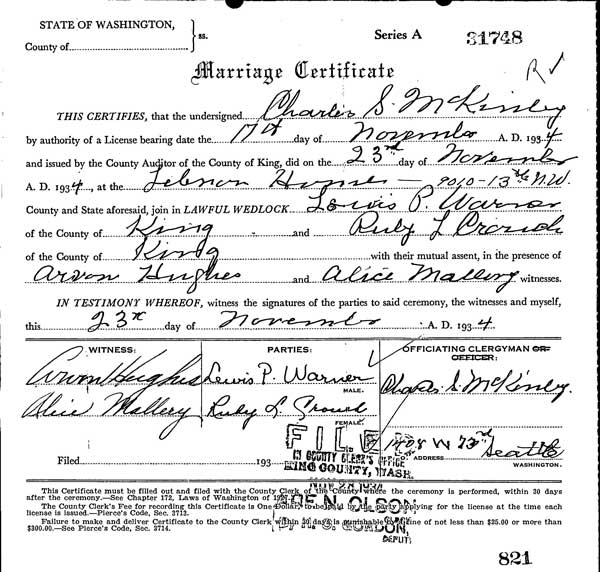 STATE OF WASHINGTON,
County of
ss.
Series A 31748
R ✓
Marriage Certificate
THIS CERTIFIES, that the undersigned Charles S. McKinley
by authority of a License bearing date the 17th day of November A. D. 1934
and issued by the County Auditor of the County of King, did on the 23rd day of November
A. D. 1934, at the Lebnon Home — 9010-13th N.W.
County and State aforesaid, join in LAWFUL WEDLOCK Lewis P. Warner
of the County of King and Ruby L
of the County of King with their mutual assent, in the presence of
Arvon Hughes and Alice Mallery witnesses.
IN TESTIMONY WHEREOF, witness the signatures of the parties to said ceremony, the witnesses and myself,
this 23rd day of November A. D. 1934.
WITNESS: PARTIES: OFFICIATING CLERGYMAN OR OFFICER:
Arvon Hughes Lewis P. Warner Charles S. McKinley.
MALE.
Alice Mallery Ruby L.
FEMALE.
FILED
IN COUNTY CLERK'S OFFICE
KING COUNTY, WASH.
1408 W 73rd Seattle
P. O. ADDRESS WASHINGTON.
Filed 193
NOV 28 1934
This Certificate must be filled out and filed with the County Clerk of the County where the ceremony is performed, within 30 days
after the ceremony.—See Chapter 172, Laws of Washington of
The County Clerk's Fee for recording this Certificate is One Dollar, to be paid by the party applying for the license at the time each
license is issued.—Pierce's Code, Sec. 3713.
OLSON
Failure to make and deliver Certificate to the County Clerk within 30 days is punishable by fine of not less than $25.00 or more than
$300.00—See Pierce's Code, Sec. 3714.
GORDON,
DEPUTY
821